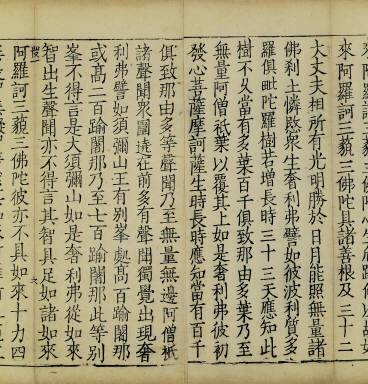 來阿羅訶三藐三佛陀具諸善根及三十二
大丈夫相所有光明勝於日月能照無量諸
佛刹土憐愍衆生奢利弗譬如彼波利質多
羅俱毗陀羅樹若增長時三十三天應知此
樹不久當有多葉百千俱致那由多葉乃至
無量阿僧祇葉以覆其上如是奢利弗彼初
發心菩薩摩訶薩生時長時應知當有百千
俱致那由多等聲聞乃至無量無邊阿僧祇
諸聲聞衆圍遶在前多有聲聞獨覺出現奢
利弗譬如須彌山王有別峯㡬高百踰闍那
或高二百踰闍那乃至七百踰闍那此等別
峯不得言是大須彌山如是奢利弗從如來
智出生聲聞亦不得言其智具足如諸如來
阿羅訶三藐三佛陀彼亦不具如來十力四